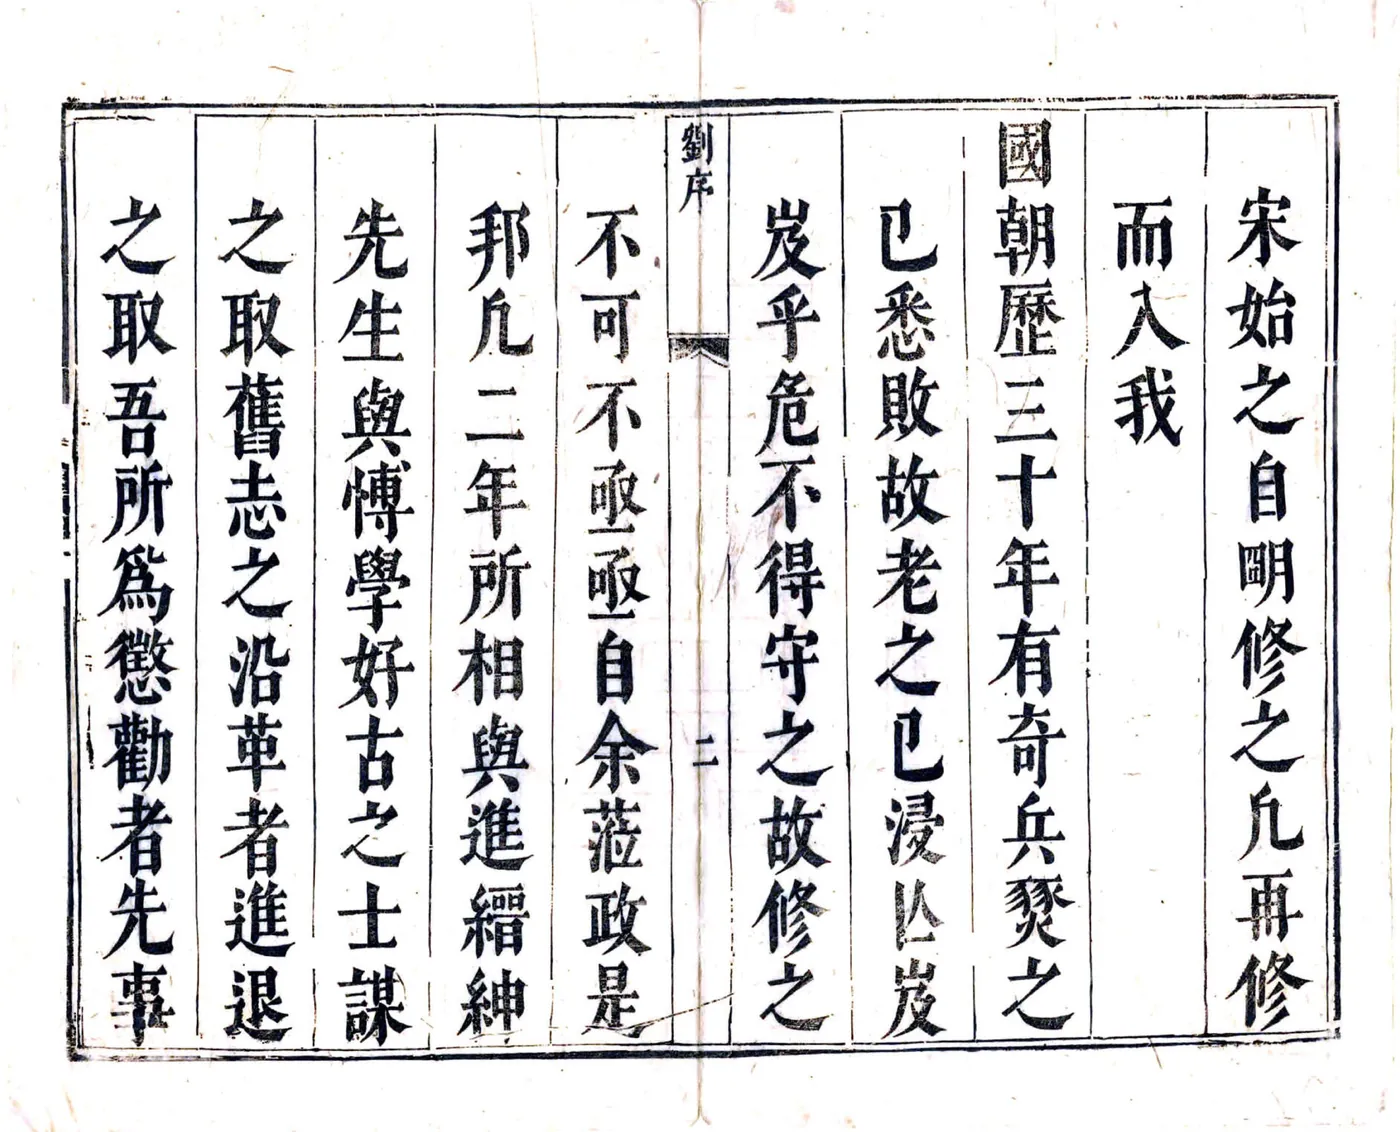 宋始之自朙修之凡再修
而入我
國朝歷三十年有奇兵燹之
已悉敗故老之已浸亾岌
岌乎危不得守之故修之
劉序
二
不可不亟亟自余蒞政是
邦凡二年所相與進縉紳
先生與愽學好古之士謀
之取舊志之沿革者進退
之取吾所爲懲勸者先事